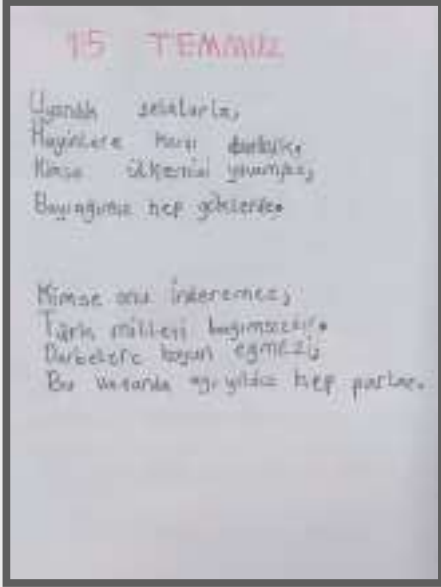 15 TEMMUZ
Uyandık selalarla,
Hayinlere karşı durduk.
Kimse ülkemizi yıkamaz,
Bayrağımız hep göklerde.
Kimse onu indiremez,
Türk milleti bağımsızdır.
Darbelere boyun eğmez,
Bu vatanda ay yıldız hep parlar.